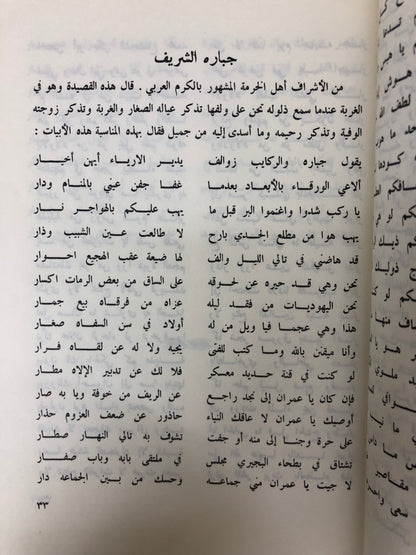 جباره الشريف
من الأشراف أهل الحرمة المشهور بالكرم العربي . قال هذه القصيدة وهو في
الغربة عندما سمع ذلوله تحن على ولفها تذكر عياله الصغار والغربة وتذكر زوجته
الوفية وتذكر رحيمه وما أسدى إليه من جميل فقال بهذه المناسبة هذه الأبيات :
يقول جباره والركايب زوالف يدير الارياء أيهن أخيار
ألاعي الورقاء بالأبعاد بعدما غفا جفن عيني بالمنام ودار
يا ركب شدوا واغنموا البر قبل ما يهب عليكم بالهواجر نار
يهب هوا من مطلع الجدي بارح لا طالعت عين الشبيب وذار
قد هاضني في تالي الليل والف لها ضيعة عقب الهجيع احوار
تحن وهي قد حيره عن لحوقه على الساق من بعض الرمات اكسار
تحن اليهوديات من فقد ليله عزاه من فرقاه بيع جمار
هذا وهي عجما فيا ويل من له أولاد في سن السفاه صغار
وأنا ميقنن بالله وما كتب للفتى يجيه ولا له عن لقاه فرار
لو كنت في قنة حديد معسكر فلا لك عن تدبير الإلاه مطار
فإن كان يا عمران إلى نجد راجع عن الريف من خوفة ويا به صار
أوصيك يا عمران لا عاقك النياء حاذور عن ضعف العزوم حذار
على حرة وجنا إلى منه أو جفت تشوف به تالي النهار صطار
تشتاق في بطحاء البجيري مجلس في ملتقى بابه وباب صفار
لا جيت يا عمران مني جماعه وحسك من بين الجماعه دار
٣٣